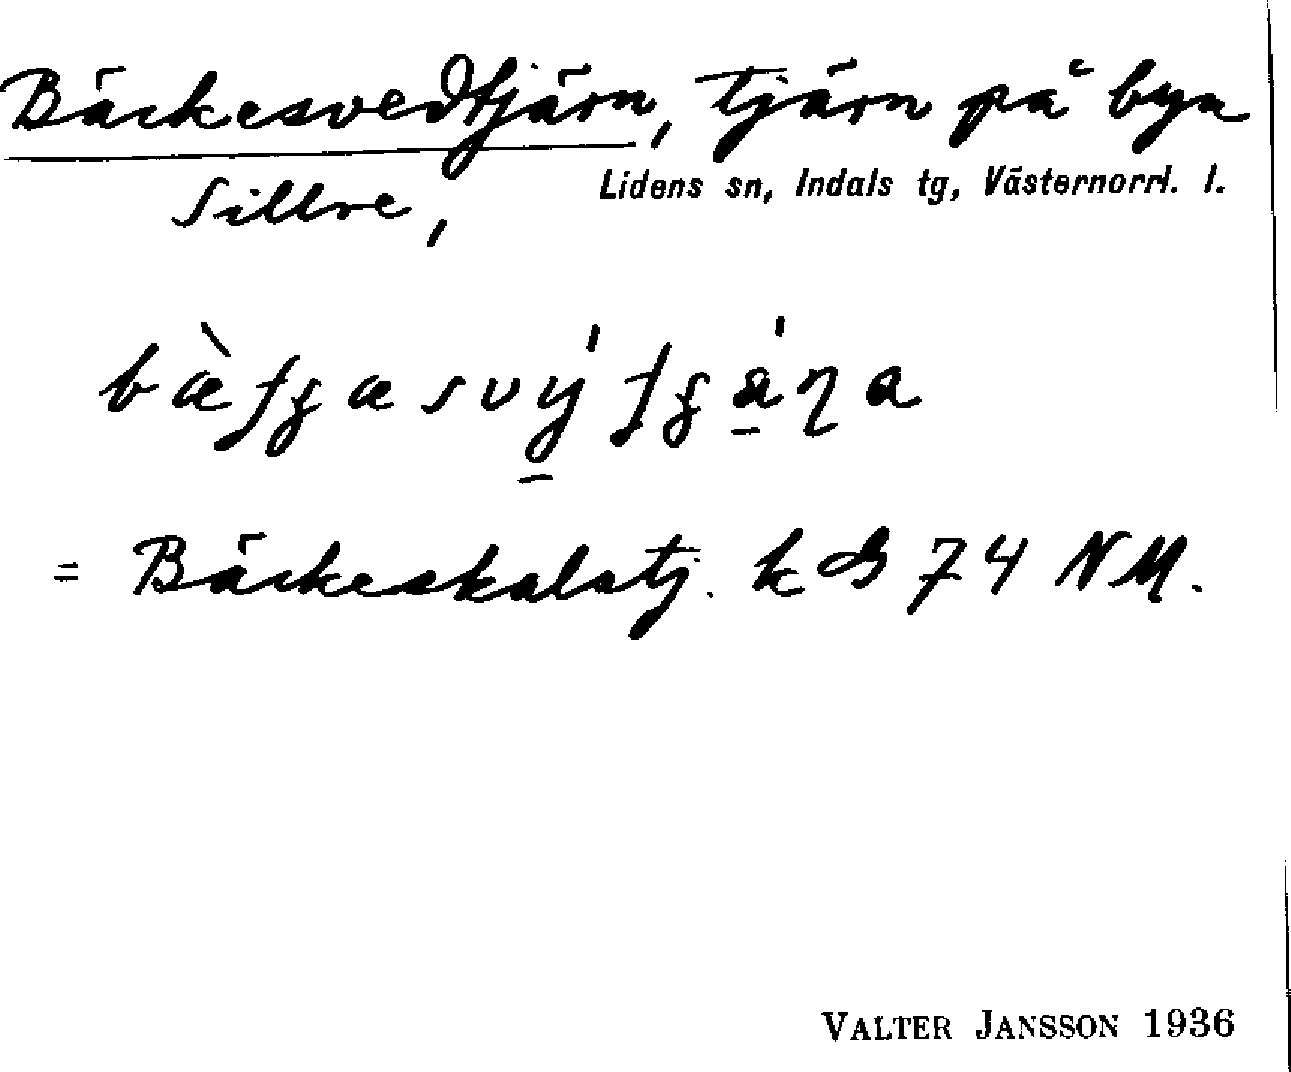 Bäckesvedtjärn, tjärn på byn
Sillre, Lidens sn, Indals tg, Västernorrl. l.
= Bäckeskalstj. k B 74 NM.
VALTER JANSSON 1936